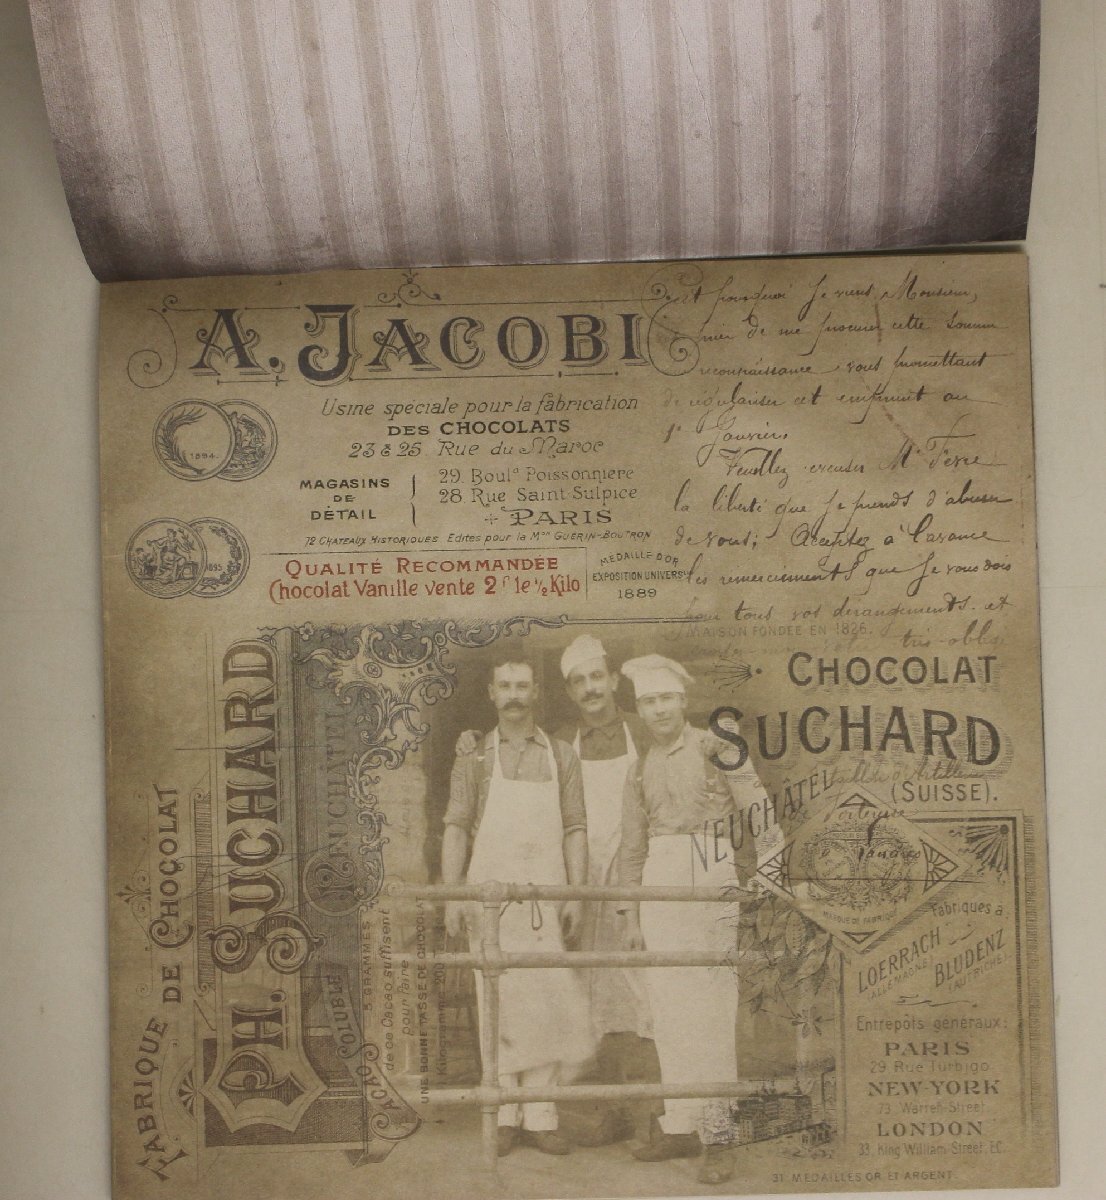 A. JACOBI
Usine spéciale pour la fabrication
DES CHOCOLATS
23 & 25 Rue du Maroc
MAGASINS
DE
DÉTAIL
29. Boulᵈ Poissonnière
28. Rue Saint-Sulpice
PARIS
72 CHATEAUX HISTORIQUES Edités pour la Mᵒⁿ GUÉRIN-BOUTRON
QUALITÉ RECOMMANDÉE
Chocolat Vanille vente 2ᶠ le ½ Kilo
MÉDAILLE D'OR
EXPOSITION UNIVERS
1889
1894
1895
pourquoi je viens Monsieur,
de me procurer cette somme
reconnaissance vous promettant
de régulariser cet emprunt au
1ᵉʳ Janvier.
Veuillez excuser Mʳ
la liberté que je prends d'abuser
de vous; Acceptez à l'avance
les remerciements que je vous dois
pour tous vos dérangements. et
très obligé
MAISON FONDÉE EN 1826.
CHOCOLAT
SUCHARD
NEUCHÂTEL
(SUISSE).
MARQUE DE FABRIQUE
Fabriques à
LOERRACH
(ALLEMAGNE)
BLUDENZ
(AUTRICHE)
Entrepôts généraux:
PARIS
29 Rue Turbigo
NEW-YORK
73, Warren Street
LONDON
33, King William Street. EC.
31 MÉDAILLES OR ET ARGENT.
FABRIQUE DE CHOCOLAT
PH. SUCHARD
NEUCHATEL
CACAO SOLUBLE
5 GRAMMES
de ce Cacao suffisent
pour faire
UNE BONNE TASSE DE CHOCOLAT